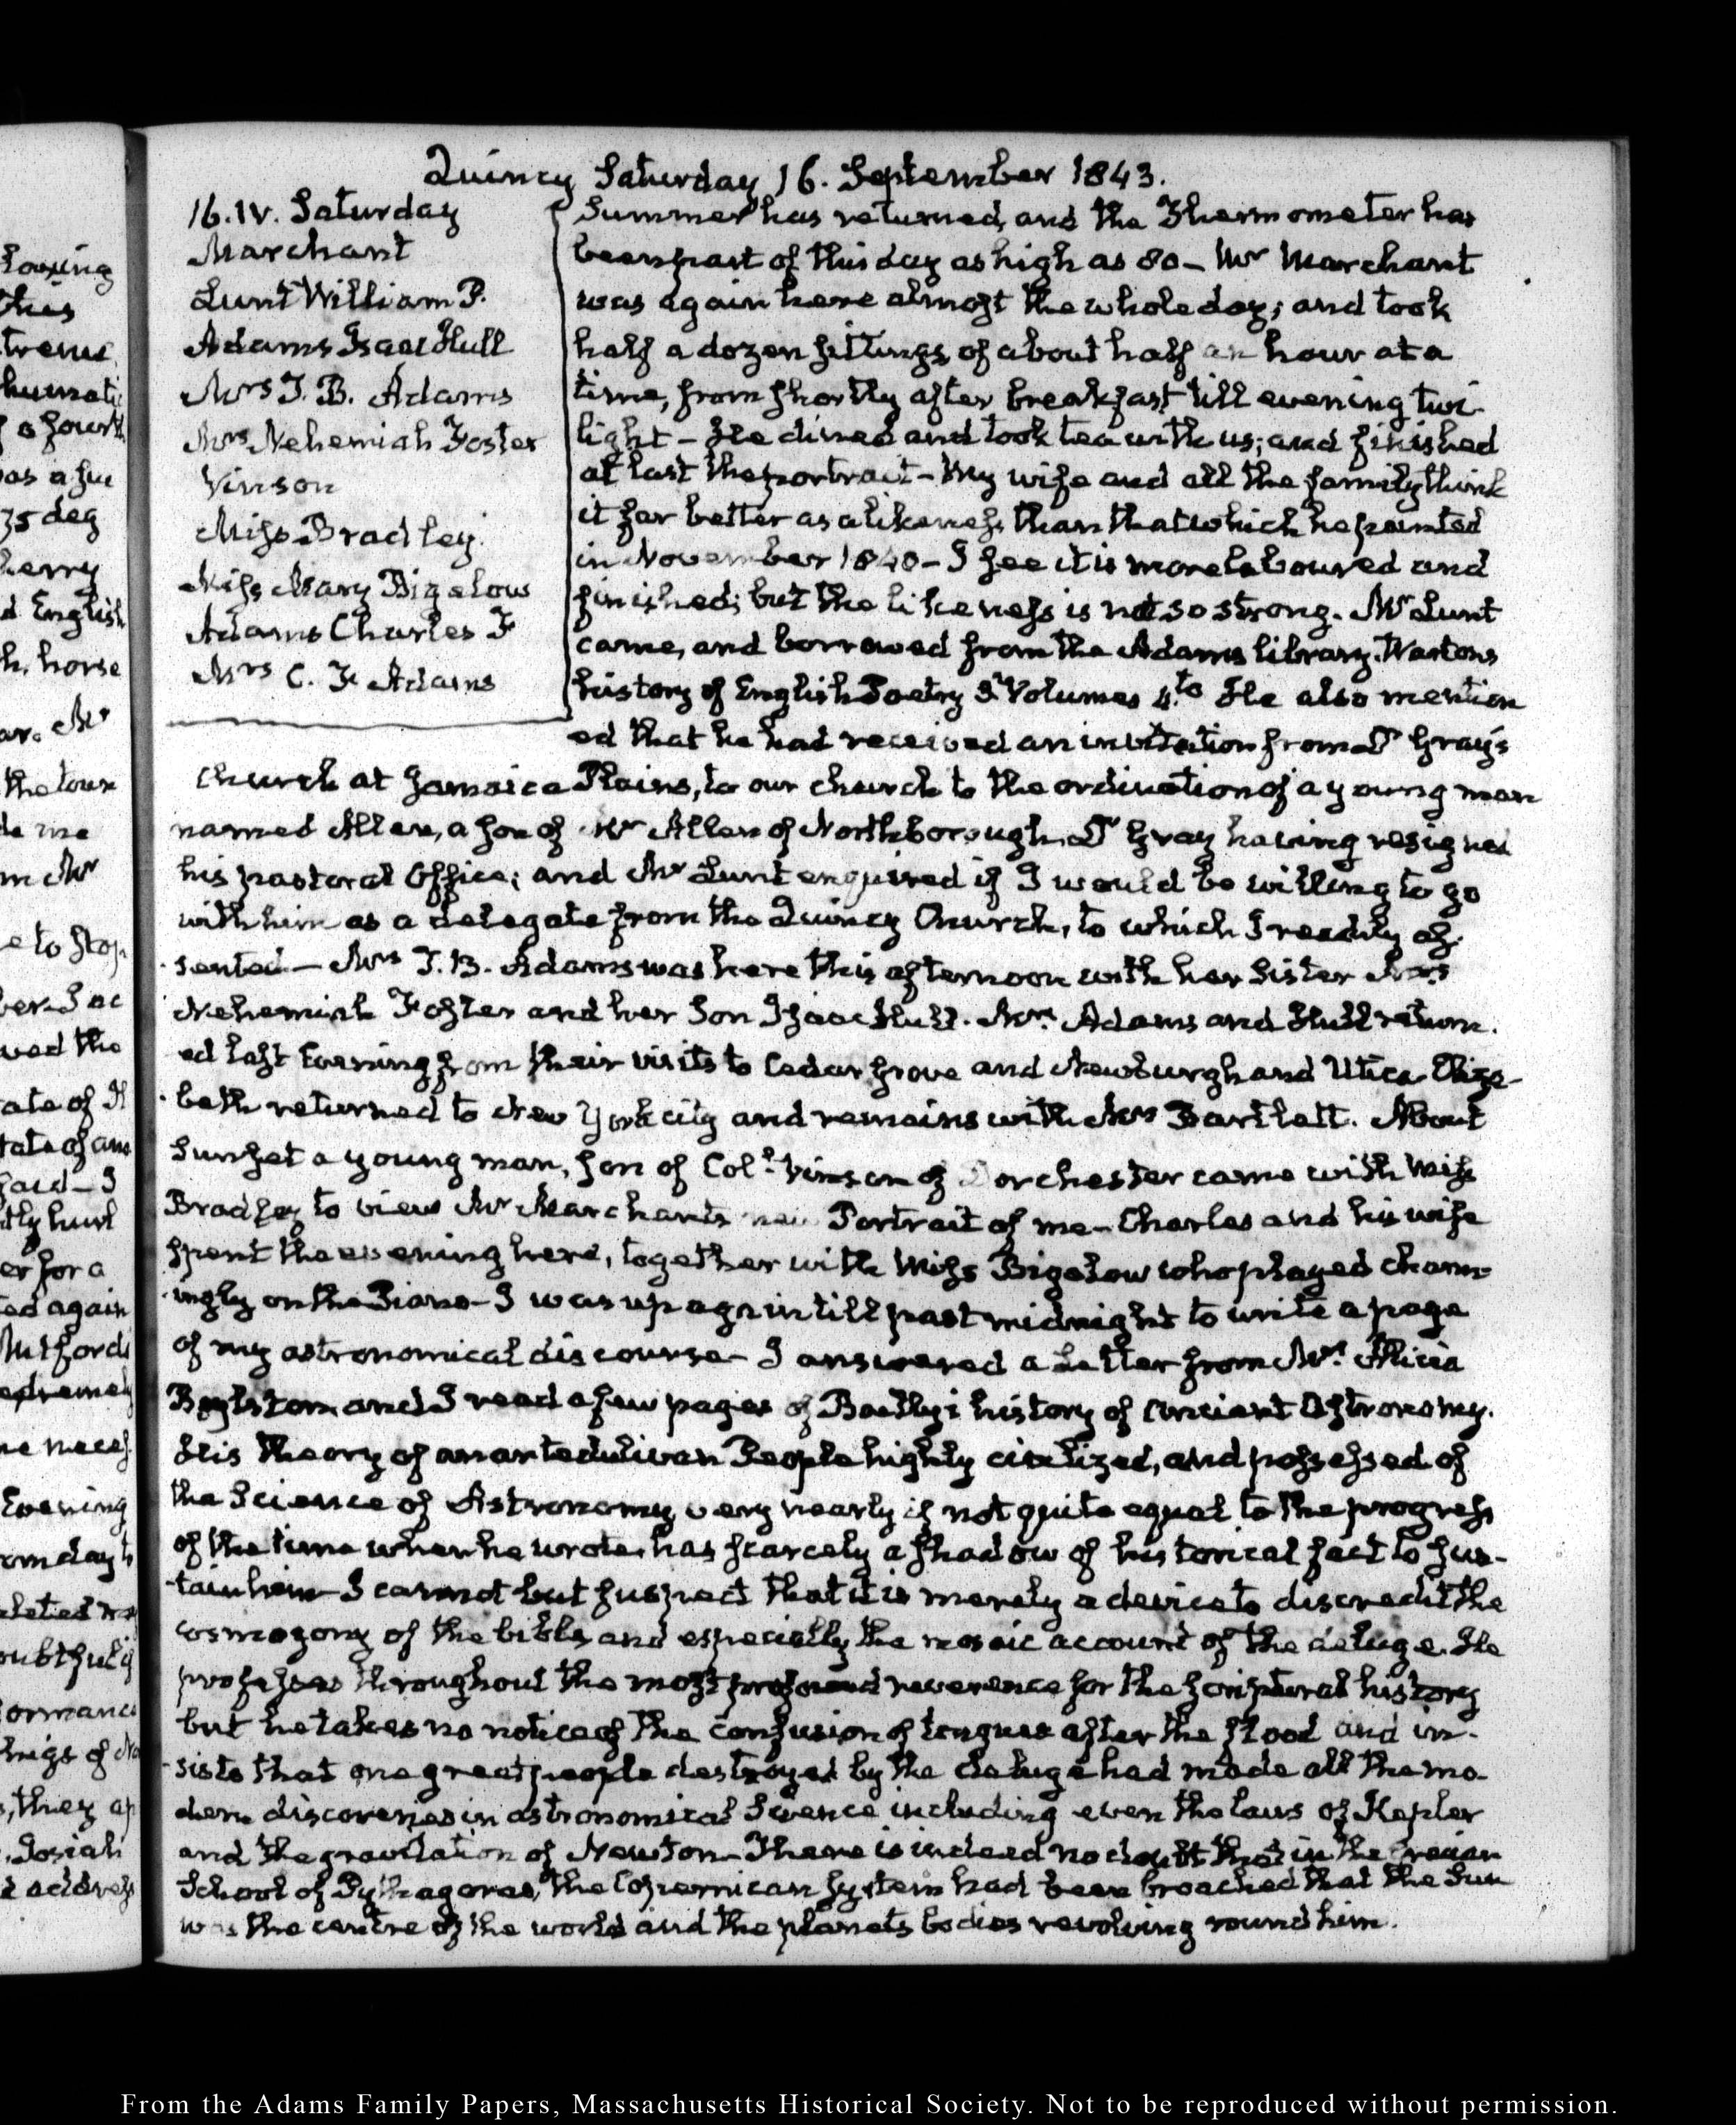 Quincy Saturday 16. September 1843.
16. IV. Saturday
Marchant
Lunt William P.
Adams Isaac Hull
Mrs T. B. Adams
Mrs Nehemiah Foster
Vinson
Miss Bradley.
Miss Mary Bigelow
Adams Charles F
Mrs C. F. Adams
Summer has returned, and the Thermometer has
been part of this day as high as 80 – Mr Marchant
was again here almost the whole day; and took
half a dozen sittings, of about half an hour at a
time, from shortly after breakfast till evening twi-
light – He dined and took tea with us; and finished
at last the portrait – My wife and all the family think
it far better as a likeness, than that which he painted
in November 1840 – I see it is more laboured and
finished; but the likeness is not so strong. Mr Lunt
came, and borrowed from the Adams library. Wartons
history of English Poetry 3 Volumes 4.to He also mention
ed that he had received an invitation from Dr Gray's
church at Jamaica Plains, to our church to the ordination of a young man
named Allen, a son of Mr Allen of Northborough, Dr Gray having resigned
his pastoral Office; and Mr Lunt enquired if I would be willing to go
with him as a delegate from the Quincy Church, to which I readily as-
sented – Mrs T. B. Adams was here this afternoon with her Sister Mrs
Nehemiah Foster and her Son Isaac Hull. Mrs. Adams and Hull return-
ed last Evening from their visits to Cedar Grove and Newburgh and Utica Eliza-
beth returned to New York city and remains with Mrs Bartlett. About
Sunset a young man, son of Col.l Vinson of Dorchester came with Miss
Bradley to view Mr Marchants new Portrait of me – Charles and his wife
spent the evening here, together with Miss Bigelow who played charm-
ingly on the Piano – I was up again till past midnight to write a page
of my astronomical discourse – I answered a Letter from Mrs. Alicia
Boylston and I read a few pages of Bailly's history of Ancient Astronomy.
His theory of an antediluvian People highly civilized, and possessed of
the Science of Astronomy very nearly if not quite equal to the progress
of the time when he wrote, has scarcely a shadow of historical fact to sus-
tain him – I cannot but suspect that it is merely a device to discredit the
cosmogony of the bible, and especially the mosaic account of the deluge. He
professes throughout the most profound reverence for the scriptural history
but he takes no notice of the confusion of tongues after the flood and in-
sists that one great people destroyed by the deluge had made all the mo-
dern discoveries in astronomical Science including even the laws of Kepler
and the gravitation of Newton – There is indeed no doubt that in the Grecian
School of Pythagoras, the Copernican system had been broached that the Sun
was the centre of the world and the planets bodies revolving round him.
From the Adams Family Papers, Massachusetts Historical Society. Not to be reproduced without permission.